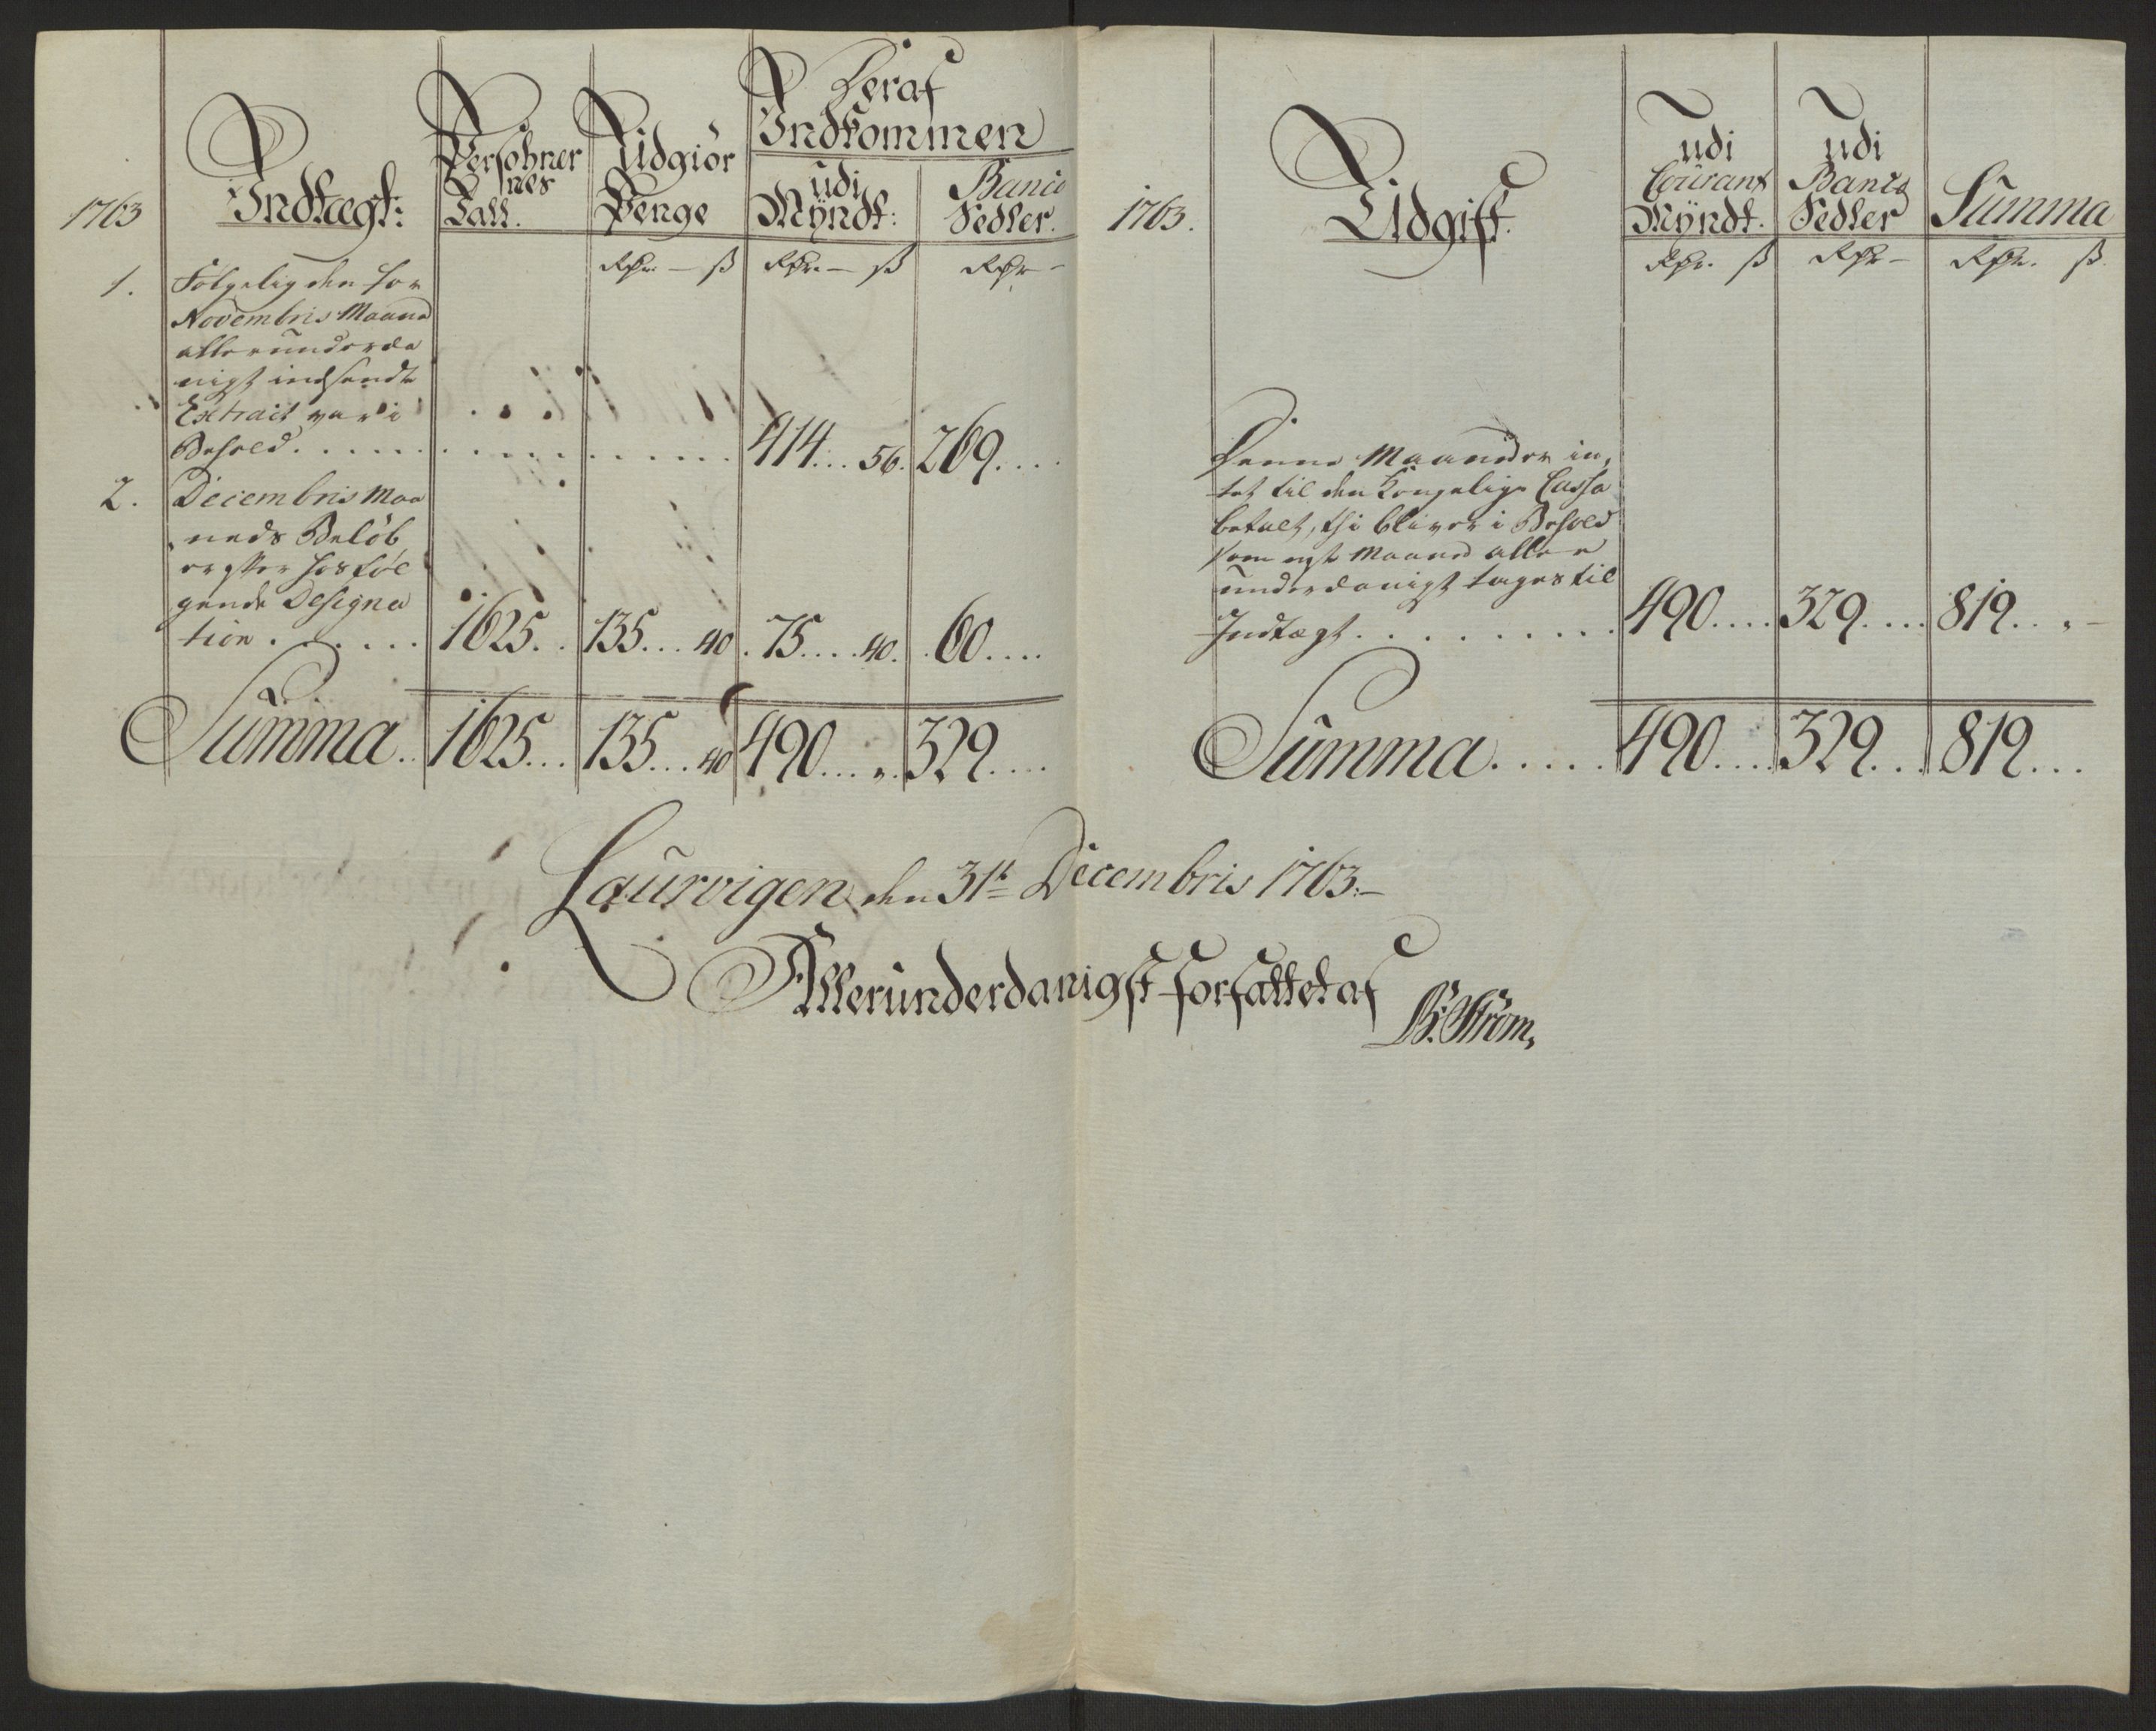 1763
Indtægt:
Persohner
nes
Tall.
Udgiör
Penge
Deraf
Indkommen
udi
Myndt:
Banco
Sedler.
Rdr — ß
Rdr — ß
Rdr —
1.
Følgelig den for
Novembris Maaned
allerunderda
nigst indsendte
Extrait var i
Behold. . . . . . 414... 56. 269....
2.
Decembris Maa
neds Beløb
efter hosføl
gende Designa
tion . . . . . 1625.. 135... 40. 75.... 40. 60....
Summa.. 1625... 135... 40 490... „. 329....
1763.
Udgift.
udi
Courant
Myndt.
udi
Banco
Sedler
Summa
Rdr. ß
Rdr —
Rdr. ß.
Denne Maaneder in,
tet til den Kongelige Cassa
betalt, thi bliver i Behold
som nest Maaned aller
underdanigst tages til
Indtægt . . . . . . . . . 490.... 329.... 819.. „ —
Summa..... 490.... 329... 819...
Laurvigen den 31te Decembris 1763.—
Allerunderdanigst forfattet af
B: Ström,